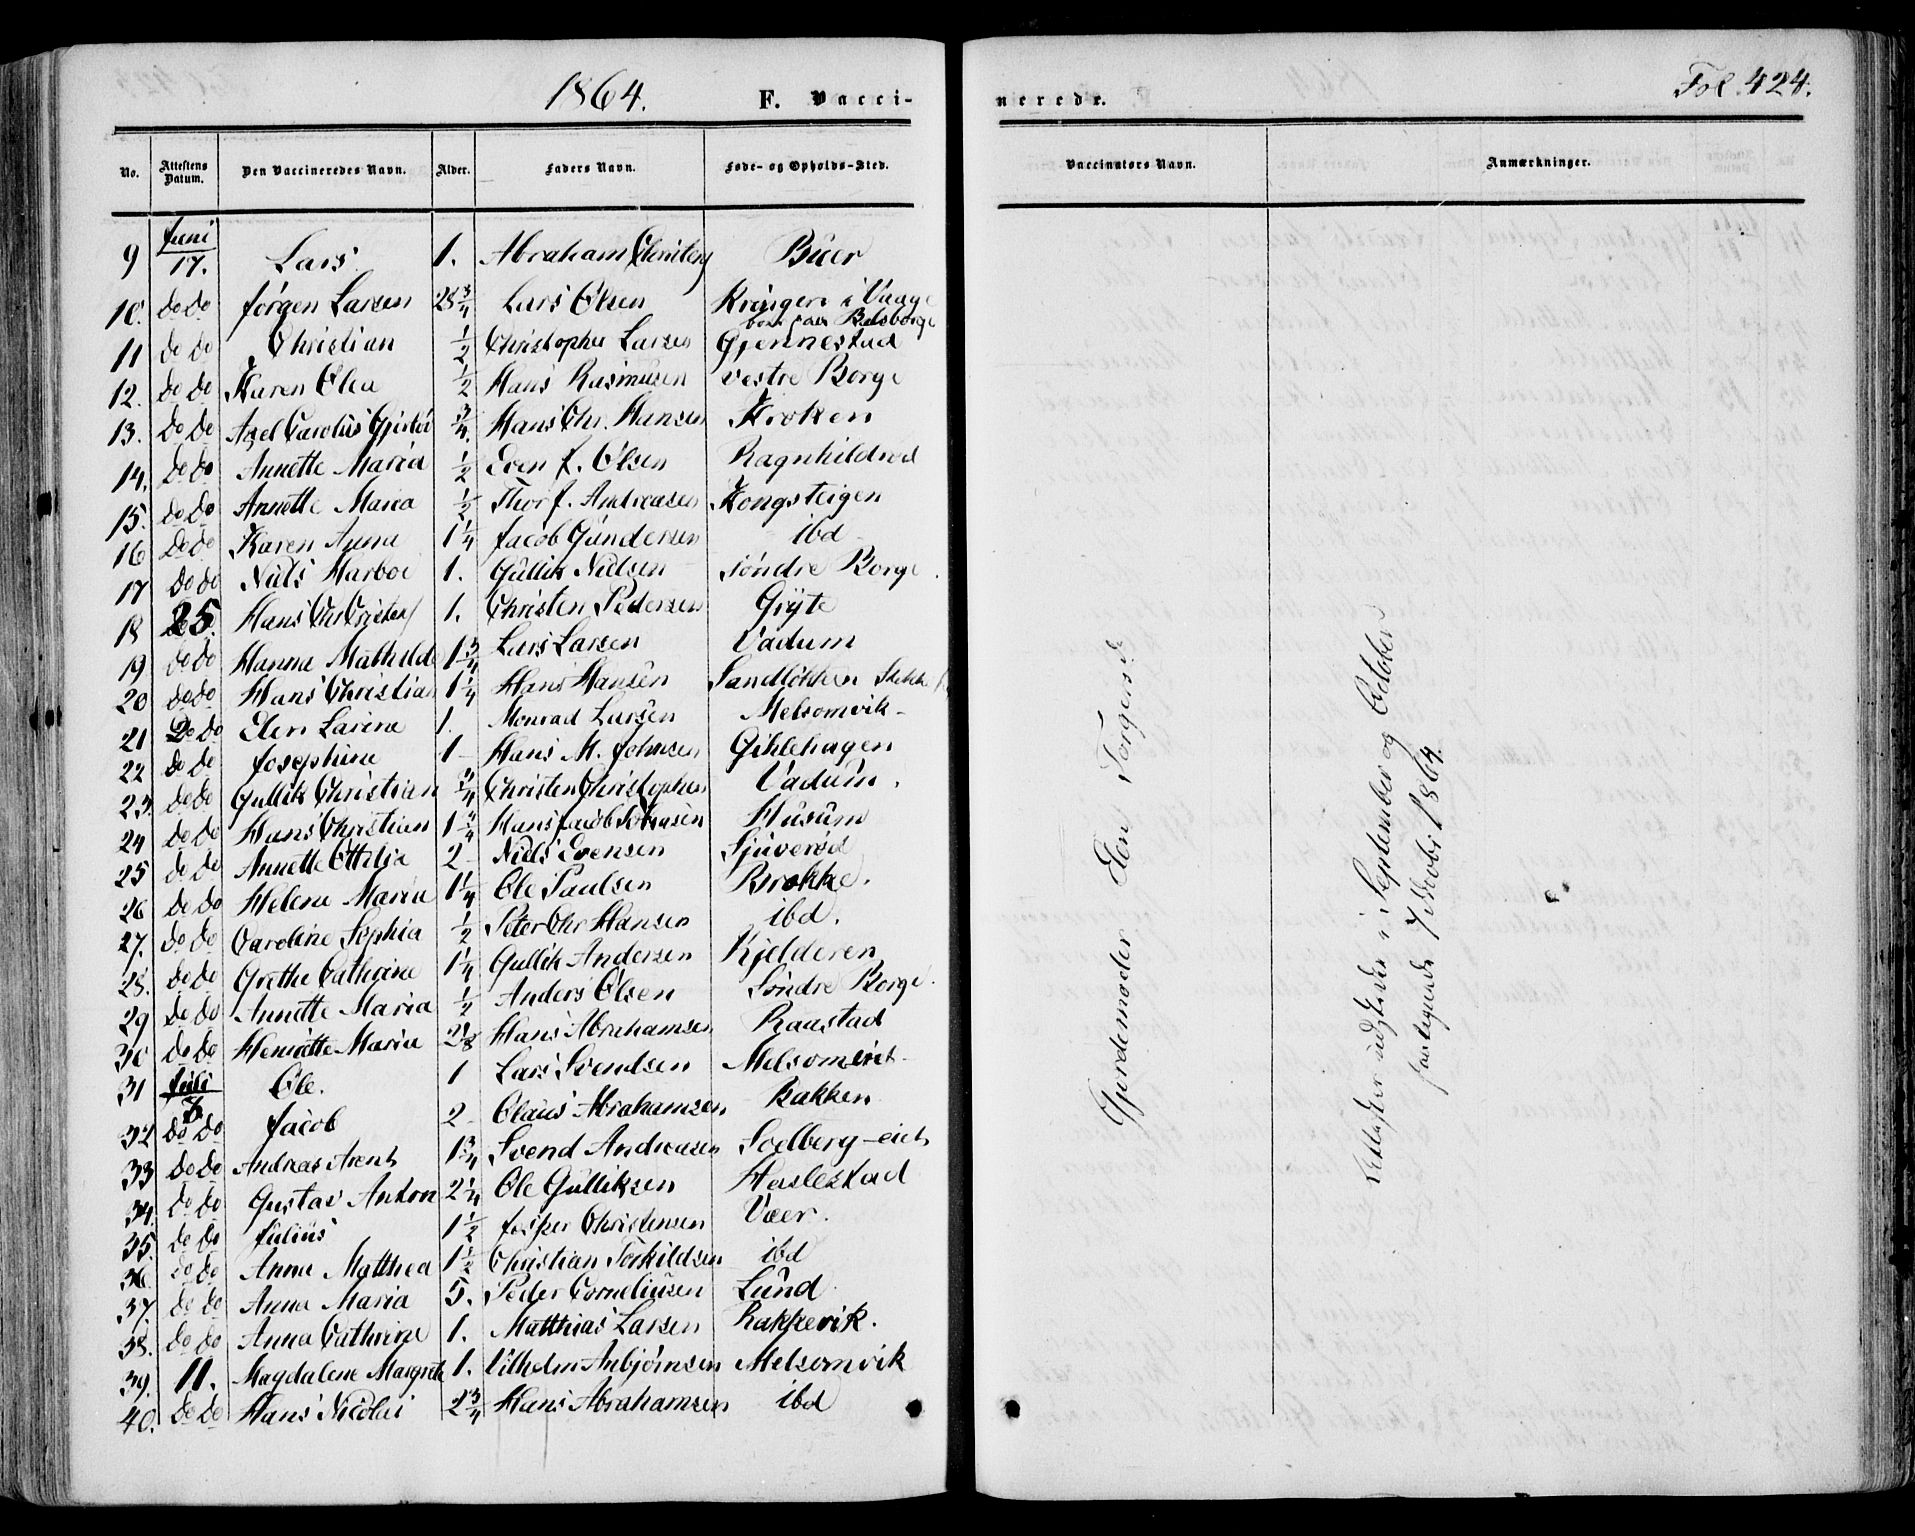 1864. F. Vacci-
nerede. Fol. 424.
No. Attestens Datum. Den Vaccineredes Navn. Alder. Faders Navn. Føde- og Opholds-Sted.
Vaccinators Navn. Anmærkninger.
9 Juni 17. Lars 1. Abraham Büer
10. do do Jørgen Larsen 28 3/4 Lars Olsen Kringen i Vaage
11 do do Christian 1/2 Christopher Larsen Gjennestad
12. do do Karen Olea 1/2 Hans Rasmusen vestre Borge
13. do do Axel Carolius 3/4. Hans Chr. Hansen Kroken
14. do do Annette Maria 1/2 Even J. Olsen Ragnhildrød
15. do do Annette Maria 1/2 Thor J. Andreasen Kongsteigen
16 do do Karen Anna 1 1/4 Jacob Gündersen ibd
17 do do Niels Marboe 1. Güllik Nielsen søndre Borge.
18 25. Hans Chr 1. Christen Pedersen Grÿte
19 do do Hanna Mathilde 1 3/4 Lars Larsen Vadum
20 do do Hans Christian 1 1/4 Hans Hansen Sandløkken
21 do do Elen Larine 1. Monrad Larsen Melsomvik-
22 do do Josephine 1- Hans M. Johnsen Gihlehagen
23. do do Gullik Christian 3/4 Christen Christophersen Vadüm.
24 do do Hans Christian 1 3/4 Hans Jacob Husüm
25 do do Annette Ottilia 2- Niels Evensen Sjüverød
26 do do Helene Maria 1 1/4 Ole Paulsen Brokke.
27. do do Caroline Sophia 1/2 Peter Chr Hansen ibd.
28. do do Grethe Cathrine 1 1/4 Gullik Andersen Kjelderen
29 do do Annette Maria 1/2 Anders Olsen Søndre Borge.
30 do do Henriette Maria 2 1/8 Hans Abrahamsen Raastad
31 Juli 7 Ole. 1 Lars Svendsen
32 do do Jacob 2- Claus Abrahamsen Bakken
33 do do Andreas Arent 1 3/4 Svend Andreasen Soelberg-eiet
34. do do Gustav Anton 2 1/4 Ole Gulliksen Haslestad
35. do do Julius 1 1/2 Jesper Christensen Væer.
36. do do Anna Matthea 1 1/2 Christian Torkildsen ibd
37. do do Anna Maria 5. Peder Corneliusen Lünd
38. do do Anna Cathrine 1. Matthias Larsen Rakkevik.
39. 11. Magdalene Margrete 1. Vilhelm Anbjørnsen Melsomvik
40. do do Hans Nicolai 2 3/4 Hans Abrahamsen ibd
Gjordemoder Elen Torgersd.
Attester udstedte i September og October
1864.